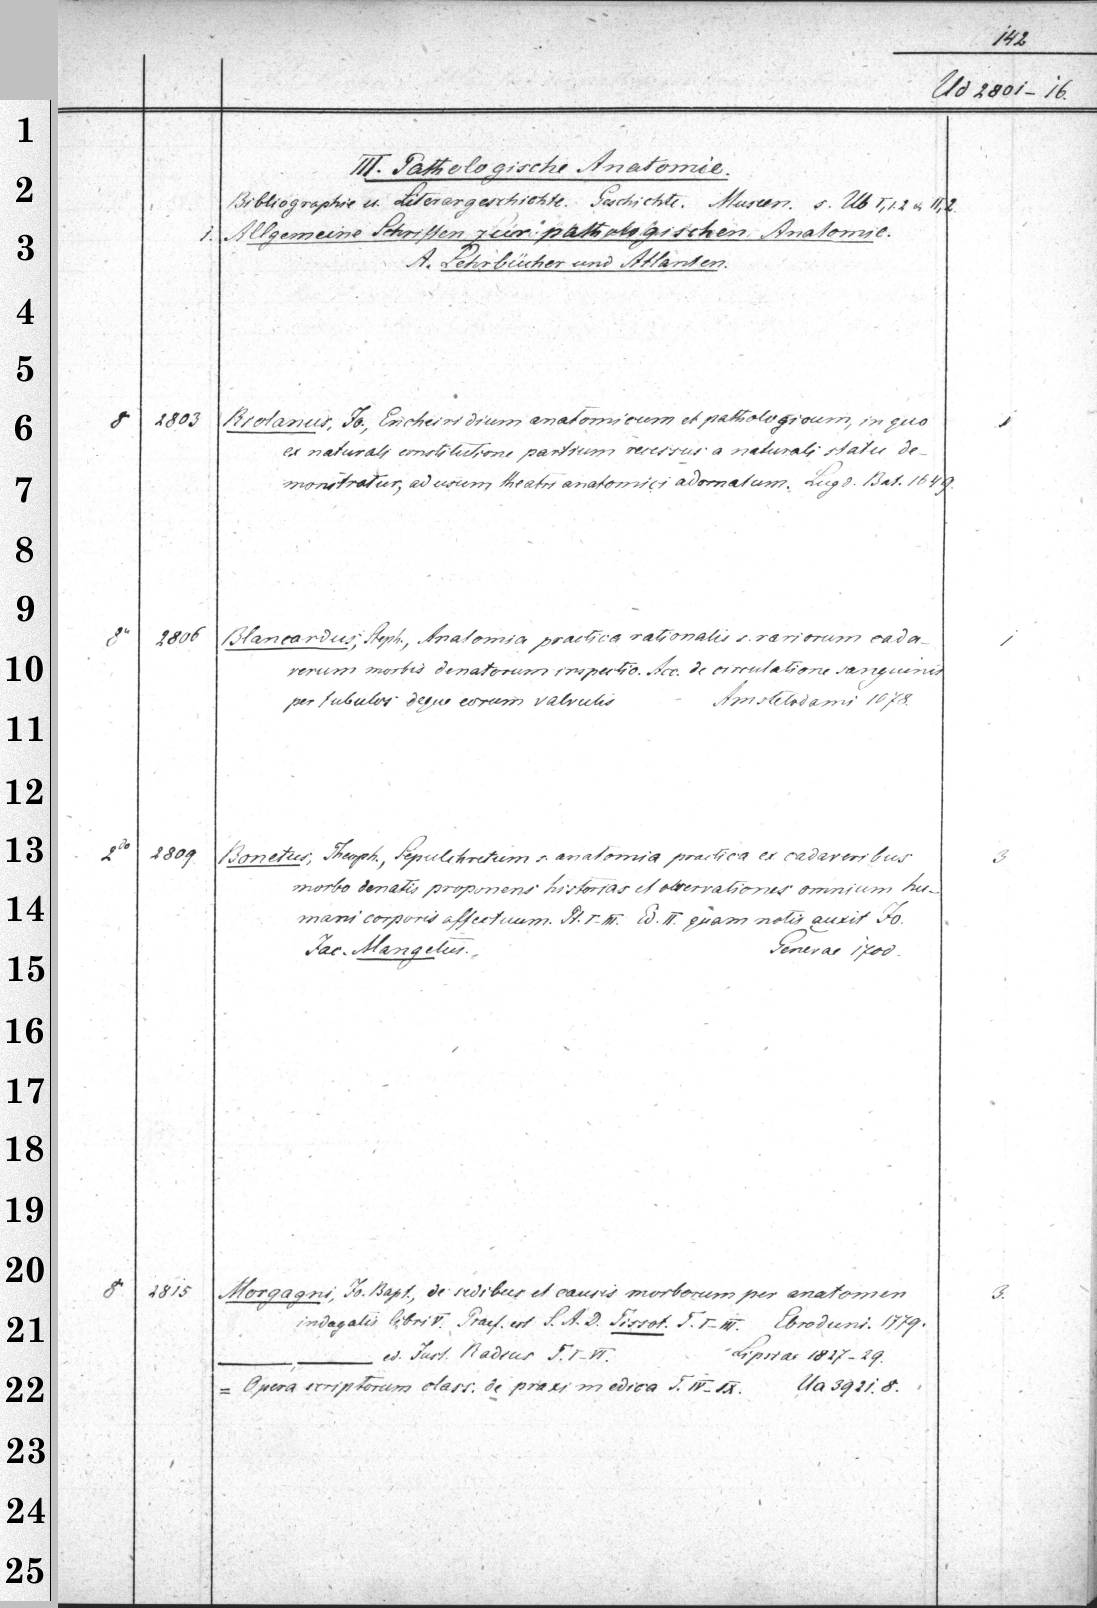 142
Ud 2801-16.
1
2
3
4
5
6
7
8
9
10
11
12
13
14
15
16
17
18
19
20
21
22
23
24
25
III. Pathologische Anatomie.
Bibliographie u. Literargeschichte. Geschichte. Museen. s. Ub I,1.2 u. II,2.
1. Allgemeine Schriften zur pathologischen Anatomie.
A. Lehrbücher und Atlanten.
8 2803 Riolanus, Jo., Encheiridium anatomicum et pathologicum, in quo 1
ex naturali constitutione partium recessus a naturali statu de-
monstratur, ad usum theatri anatomici adornatum. Lugd. Bat. 1649.
8° 2806 Blancardus, Steph., Anatomia practica rationalis s. rariorum cada- 1
verum morbis denatorum inspectio. Acc. de circulatione sanguinis
per tubulos deque eorum valvulis Amstelodami 1678.
2do 2809 Bonetus, Theoph., Sepulchretum s. anatomia practica ex cadaveribus 3
morbo denatis proponens historias et observationes omnium hu-
mani corporis affectuum. Pt. I-III. Ed. II. quam notis auxit Jo.
Jac. Mangetus. Genevae 1700.
8° 2815 Morgagni, Jo. Bapt., de sedibus et causis morborum per anatomen 3.
indagatis libri V. Praef. est S. A. D. Tissot. T. I-III. Ebroduni. 1779.
ed. Just. Radius T. I-VI. Lipsiae 1827-29.
= Opera scriptorum class. de praxi medica T. IV-IX. Ua 3921. 8.